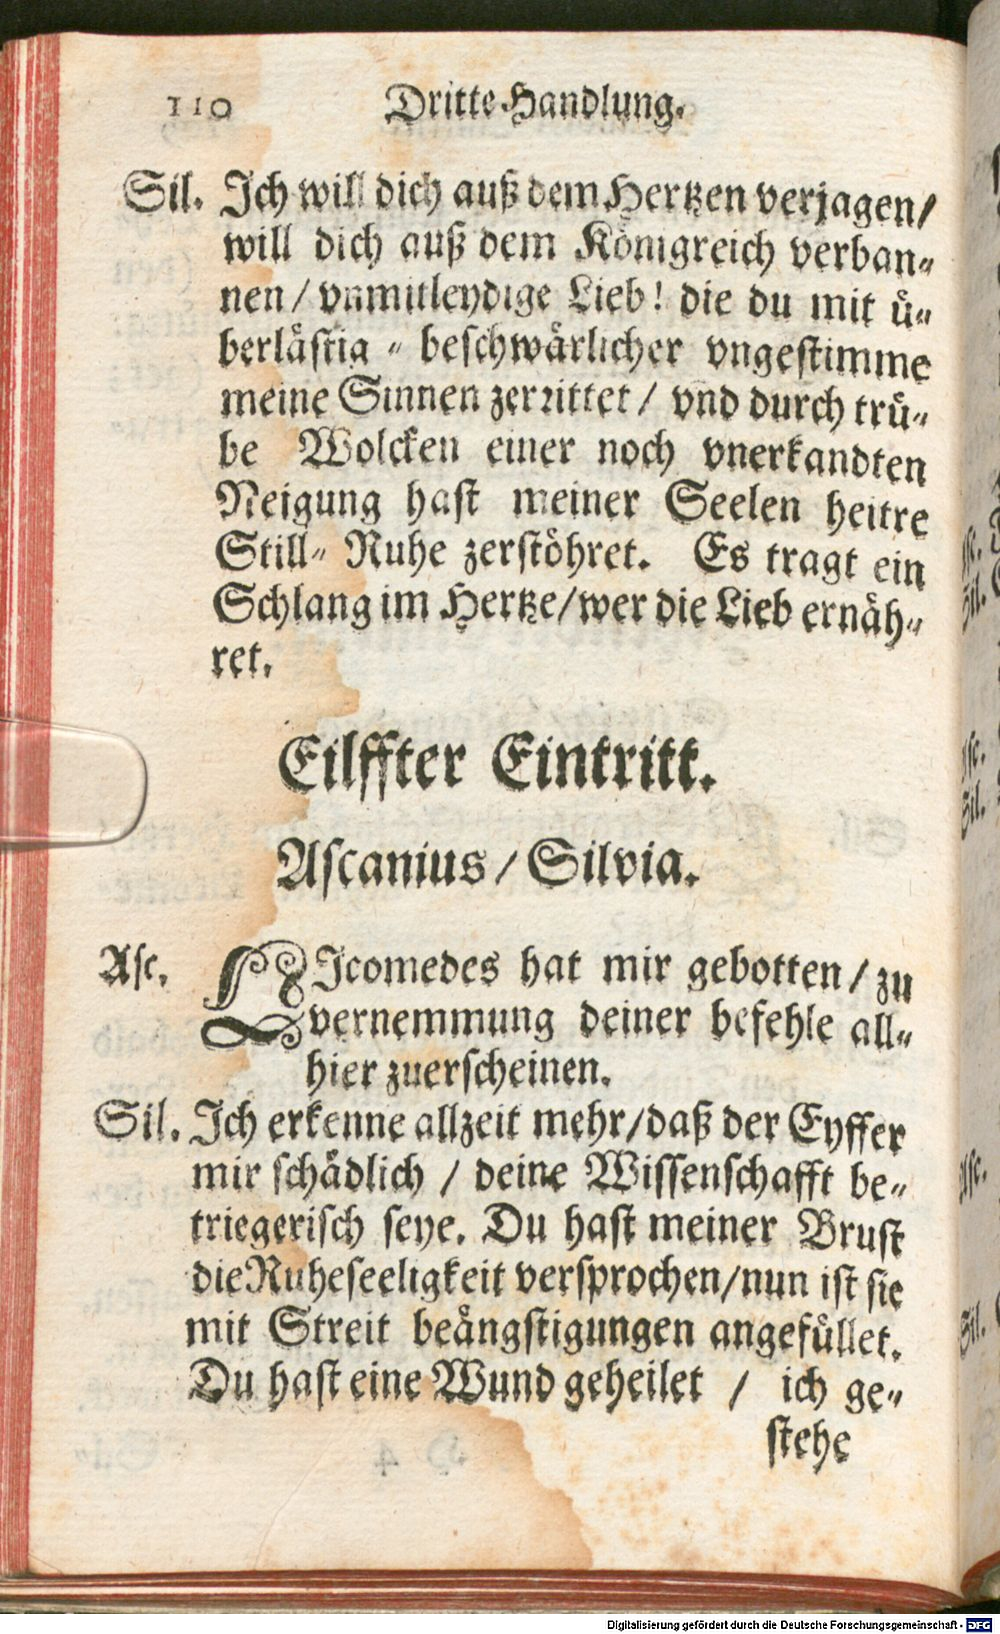 110 Dritte Handlung.
Sil. Ich will dich auß dem Hertzen verjagen/
will dich auß dem Königreich verban-
nen/ vnmitleydige Lieb! die du mit ü-
berlästig - beschwärlicher vngestimme
meine Sinnen zerrittet/ vnd durch trü-
be Wolcken einer noch vnerkandten
Neigung hast meiner Seelen heitre
Still- Ruhe zerstöhret. Es tragt ein
Schlang im Hertze/wer die Lieb ernäh-
ret.
Eilffter Eintritt.
Ascanius/ Silvia.
Asc. NIcomedes hat mir gebotten/ zu
vernemmung deiner befehle all-
hier zuerscheinen.
Sil. Ich erkenne allzeit mehr/daß der Eyffer
mir schädlich / deine Wissenschafft be-
triegerisch seye. Du hast meiner Brust
die Ruheseeligkeit versprochen/nun ist sie
mit Streit beängstigungen angefüllet.
Du hast eine Wund geheilet / ich ge-
stehe
Digitalisierung gefördert durch die Deutsche Forschungsgemeinschaft - DFG